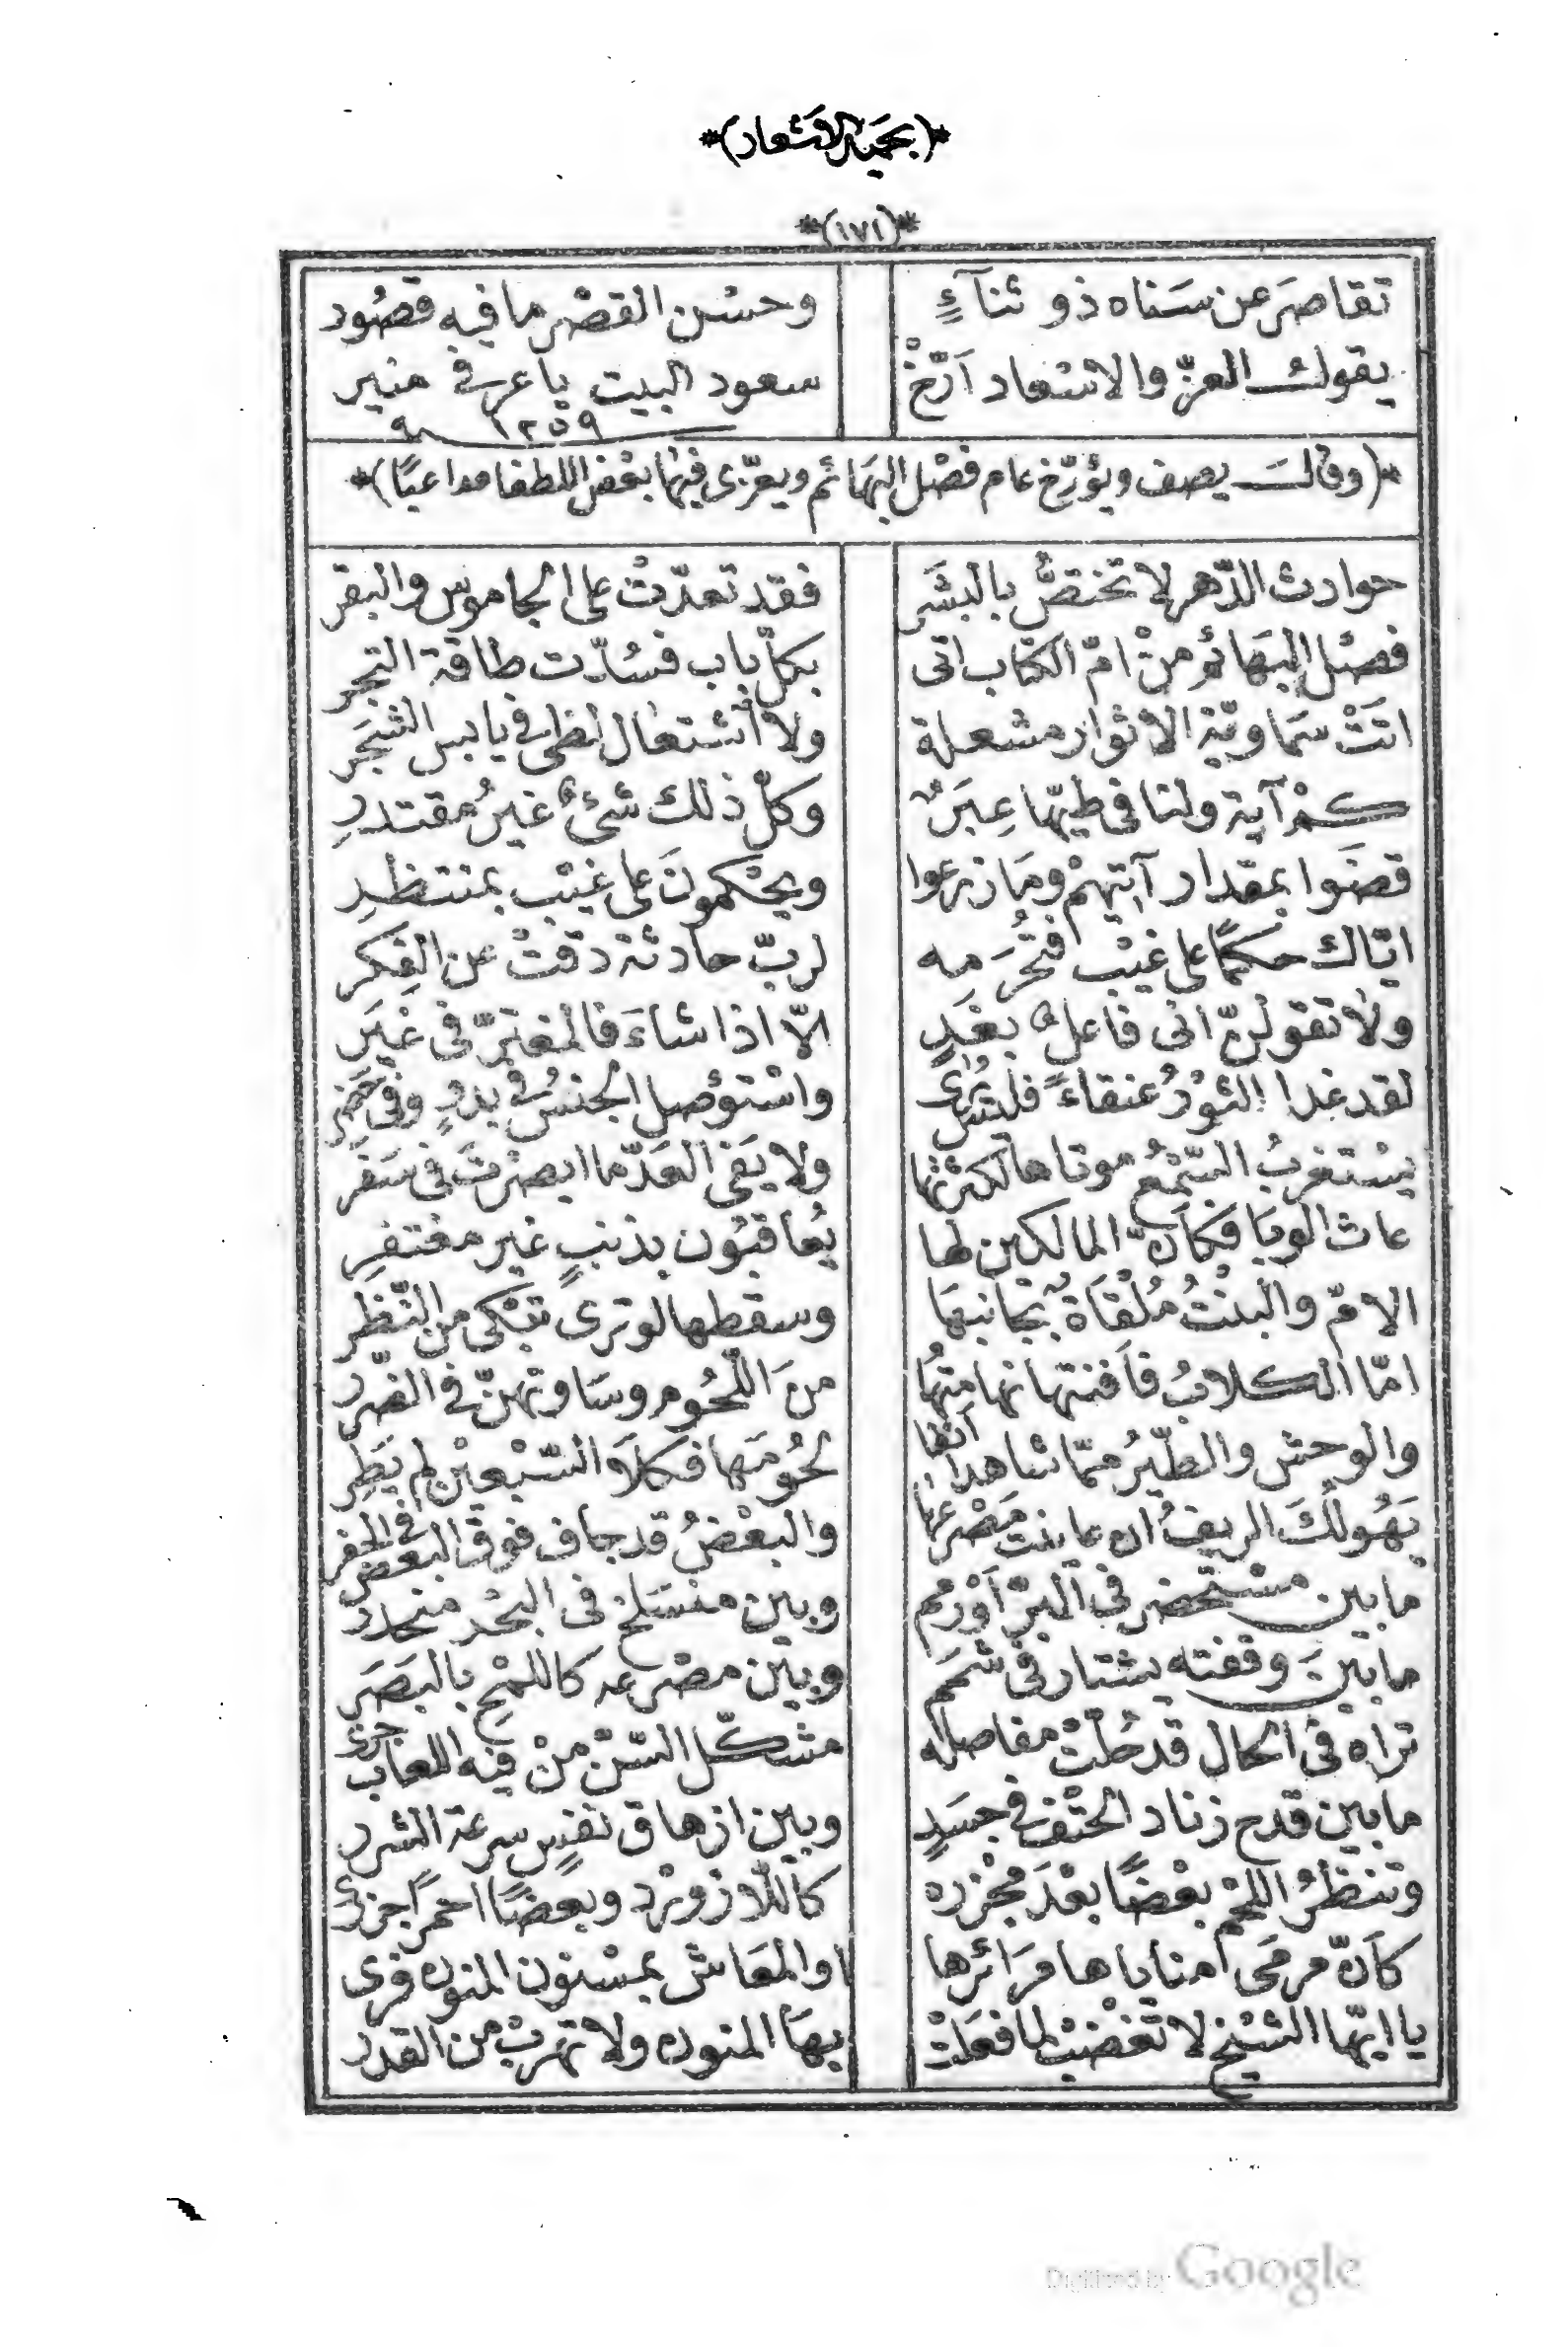 *(بجميل الاشعار)*
*(١٧١)*
تقاصَرَ عن سَناه ذو ثنآءٍ وحسْن القصْر ما فيه قصُور
يقول العزّ والاسْعاد اَرّخْ سعود البيت يا عز في منير
١٢٥٩
*(وقال يصف ويؤرّخ عام فصْل البهَائم ويعزّى فيها بعْض اللطفا مداعبًا)*
حوادث الدّهر لا تختصُّ بالبشَر فقد تعدّتْ على الجاموس والبقر
فصْل البهَائم منْ امّ الكتاب اتى بكلّ باب فسُدّت طاقة الحجر
اتَتْ سَماويّة الاثوار مشعلة ولا اشتعال لظى في يابس الشجَر
كمْ آية ولنا في طيّها عِبَرٌ وكلّ ذلك شئٌ غيرُ مقتدرِ
قضَوا بمقدار آتيهمْ ومَا زرعوا ويحْكمونَ على غيْب بمنتظرِ
ايّاك حكمًا على غيْب فتُحْرَمه لربّ حادثة دقتْ عن الفِكر
ولا تقولنّ انى فاعلٌ بغَدٍ الّا اذا شاءَ فالمغترّ فى غِيَرَ
لقد غدا الثوْرُ عنقاءً فليسَ يُرى واسْتؤصل الجنسُ في بدوٍ وفى حَضَر
يسْتغربُ السّمْعُ موتاها لكثرتها ولا يَفى العَدّ ما ابصرْتَ فى سَفر
عاث الوبَا فكاَنّ المالكين لها يُعاقبُون بذنبٍ غير مغتفرِ
الامّ والبنْتُ مُلْقَاةٌ بجانبهَا وسقطها لو ترى تبْكى من النّظر
امّا الكلابُ فاَفنتها نهامتُها منَ اللّحُوم وساوتهنّ فى الضّرر
والوحش والطّيْرُ ممّا شاهدا انفا لحُومَها فكلاَ السّبْعيْن لم يَطِر
يَهُولُكَ الريفُ ان عاينت مَصْرعها والبعْضُ قد جاف فوق البعض فى الحفر
ما بين مسْتحْضر في البرّ اَوْ رمم وبين منسَلخ فى البحْر منحدر
ما بينَ وقفته يشتار فى شَمَم وبيْن مصْرعه كاللمْحِ بالبَصَرَ
تراه فى الحال قد حُلّتْ مفاصله مشكّل السّنّ منْ فيه اللعاب جرى
ما بين قدح زناد الحتْف في جسَدٍ وبين ازهاق نفسٍ سرعة الشرر
وتنظرُ اللحْم بعْضًا بعْدَ مجْزره كاَللّازورْد وبعضًا احْمَراً جزرى
كاَنّ مرمَى منايا ها مرَائرها او المعَاش بمسْنون المنون فرى
يا ايّها الشيْخ لا تغْضبْ لما فعَلتْ بهَا المنون ولا تهربْ من القدر
Digitized by Google